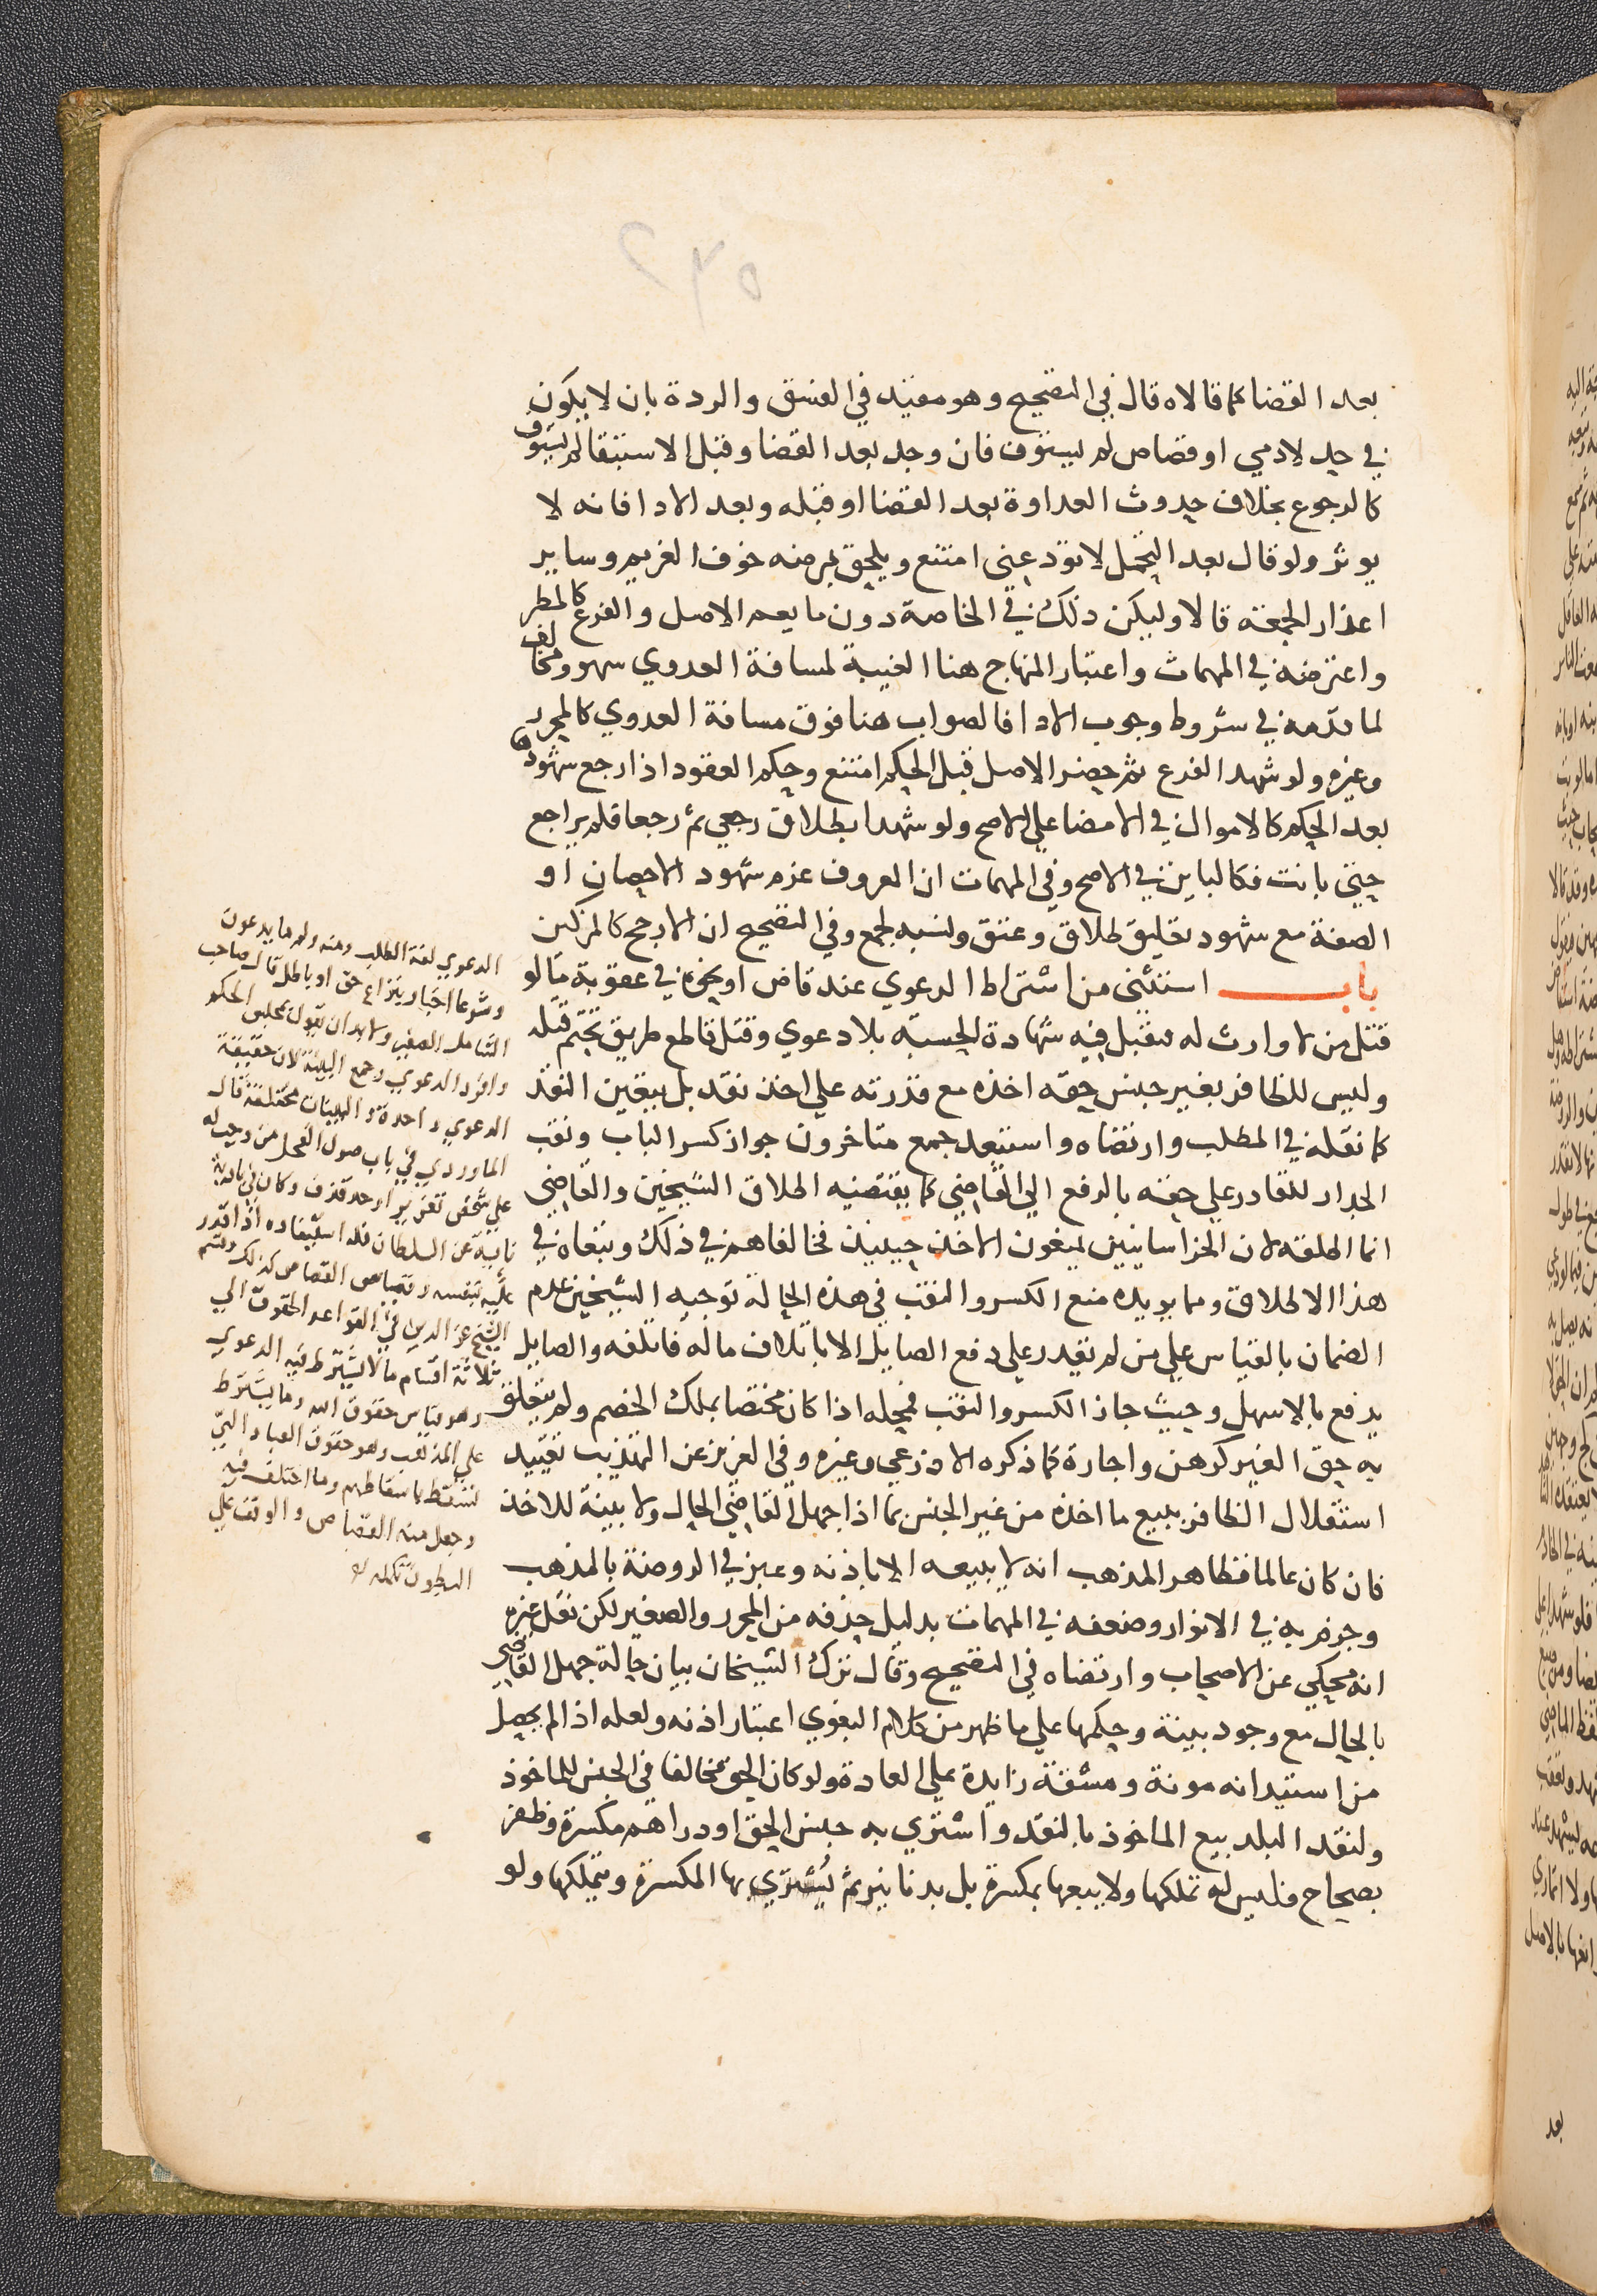 بعد القضا كما قالاه قال في التصحيح وهو مقيد في الفسق والردة بان لا يكون
في حد لادمي او قصاص لم يستوف فان وجد بعد القضا وقبل الاستيفا لم يستوف
كالرجوع بخلاف حدوث العداوة بعد القضا او قبله وبعد الادا فانه لا
يوثر ولو قال بعد التحمل لا تود عني امتنع ويلحق بمرضه خوف الغريم وساير
اعذار الجمعة قالا وليكن ذلك في الخاصة دون ما يعم الاصل والفرع كالمطر
واعترضه في المهمات واعتبار المنهاج هنا الغيبة لمسافة العدوي سهو ومخالف
لما قدمه في شروط وجوب الادا فالصواب هنا فوق مسافة العدوي كالمحرر
وغيره ولو شهد الفرع ثم حضر الاصل قبل الحكم امتنع وحكم العقود اذا رجع شهودها
بعد الحكم كالاموال في الامضا علي الاصح ولو شهدا بطلاق رجعي ثم رجعا فلم يراجع
حتي بانت فكالباين في الاصح وفي المهمات ان المعروف غرم شهود الاحصان او
الصفة مع شهود تعليق طلاق وعتق ونسبه لجمع وفي التصحيح ان الارجح كالمزكين
باب استثني من اشتراط الدعوي عند قاض او نحوه في عقوبة ما لو
قتل من لا وارث له فتقبل فيه شهادة الحسبة بلا دعوي وقتل قاطع طريق تحتم قتله
وليس للظافر بغير جنس حقه اخذه مع قدرته علي اخذ نقد بل يتعين النقد
كما نقله في المطلب وارتضاه واستبعد جمع متاخرون جواز كسر الباب ونقب
الجدار للقادر علي حقه بالرفع الي القاضي كما يقتضيه اطلاق الشيخين والقاضي
انما اطلقه لان الخراسانيين يمنعون الاخذ حينيذ فخالفاهم في ذلك وتبعاه في
هذا الاطلاق ومما يويده منع الكسر والنقب في هذه الحالة توجيه الشيخين عدم
الضمان بالقياس علي من لم يقدر علي دفع الصايل الا باتلاف ماله فاتلفه والصايل
يدفع بالاسهل وحيث جاز الكسر والنقب فمحله اذا كان مختصا بملك الخصم ولم يتعلق
به حق الغير كرهن واجارة كما ذكره الاذرعي وغيره وفي العزيز عن التهذيب تقييد
استقلال الظافر ببيع ما اخذه من غير الجنس بما اذا جهل القاضي الحال ولا بينة للاخذ
فان كان عالما فظاهر المذهب انه لا يبيعه الا باذنه وعبر في الروضة بالمذهب
وجزم به في الانوار وضعفه في المهمات بدليل حذفه من المحرر والصغير لكن نقل غيره
انه محكي عن الاصحاب وارتضاه في التصحيح وقال ترك الشيخان بيان حالة جهل القاضي
بالحال مع وجود بينة وحكمها علي ما ظهر من كلام البغوي اعتبار اذنه ولعله اذا لم يحصل
من استيذانه مونة ومشقة زايدة علي العادة ولو كان الحق مخالفا في الجنس للماخوذ
ولنقد البلد بيع الماخوذ بالنقد واشتري به جنس الحق او دراهم مكسرة وظفر
بصحاح فليس له تملكها ولا بيعها بمكسرة بل بدنانير ثم يشتري بها المكسرة ويتملكها ولو
الدعوي لغة الطلب ومنه ولهم ما يدعون
وشرعا اخبار بنزاع حق او باطل قال صاحب
الشامل الصغير ولا بد ان يقول بمجلس الحكم
وافرد الدعوي وجمع البينة لان حقيقة
الدعوي واحدة والبينات مختلفة قال
الماوردي في باب صول الفحل من وجب له
علي شخص تعزير او حد قذف وكان في بادية
نايية عن السلطان فله استيفاوه اذا قدر
عليه بنفسه وقياس القصاص كذلك وقسم
الشيخ عز الدين في القواعد الحقوق الي
ثلاثة اقسام ما لا يشترط فيه الدعوي
وهو قياس حقوق الله وما يشترط
علي المذهب وهو حقوق العباد التي
تسقط باسقاطهم وما اختلف فيه
وجعل منه القصاص والوقف علي
البطون تكمله